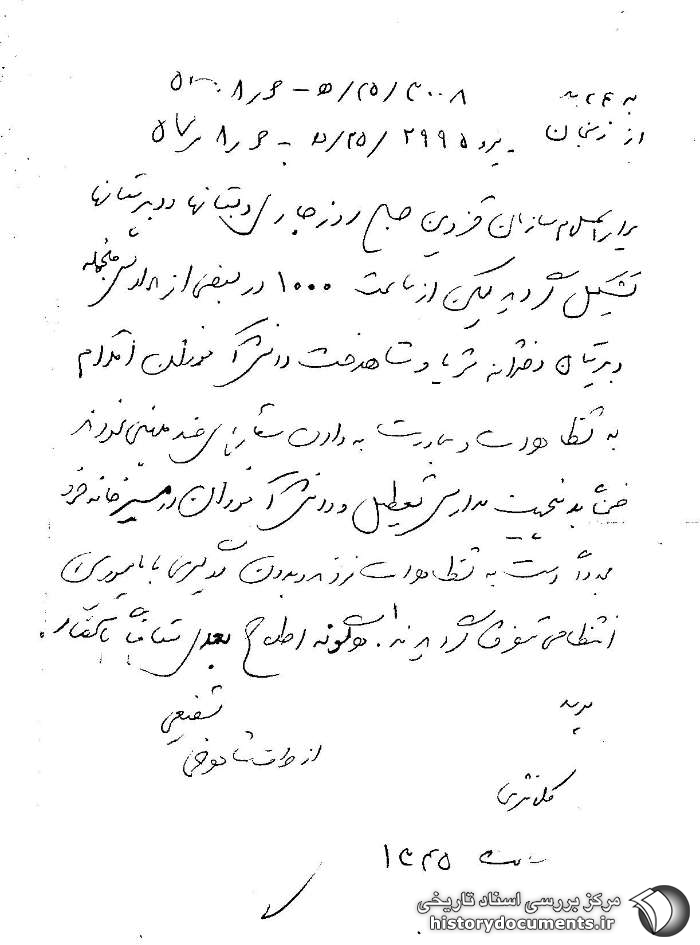 به ۲۴۰ به ۳۰۰۸/ ۲۵/ ه‍ -
از زنجان ۲۹۹۵/ ۲۵/ به
برابر اعلام سازمان قزوین صبح روز جاری دبستانها و دبیرستانها
تشکیل گردید لیکن از ساعت ۱۰۰۰ در بعضی از مدارس منجمله
دبیرستان دخترانه ثریا و شاهدخت دانش‌آموزان اقدام
به تظاهرات و مبادرت به دادن شعارهای ضد میهنی نمودند
ضمناً بدینجهت مدارس تعطیل و دانش‌آموزان در مسیر خانه خود
مجدداً دست به تظاهرات زدند و بدون درگیری با مامورین
انتظامی متفرق گردیدند. هرگونه اطلاع بعدی متعاقباً باستحضار
شفیعی
از
کلانتری
ساعت ۱۳۴۵
مرکز بررسی اسناد تاریخی
historydocuments.ir